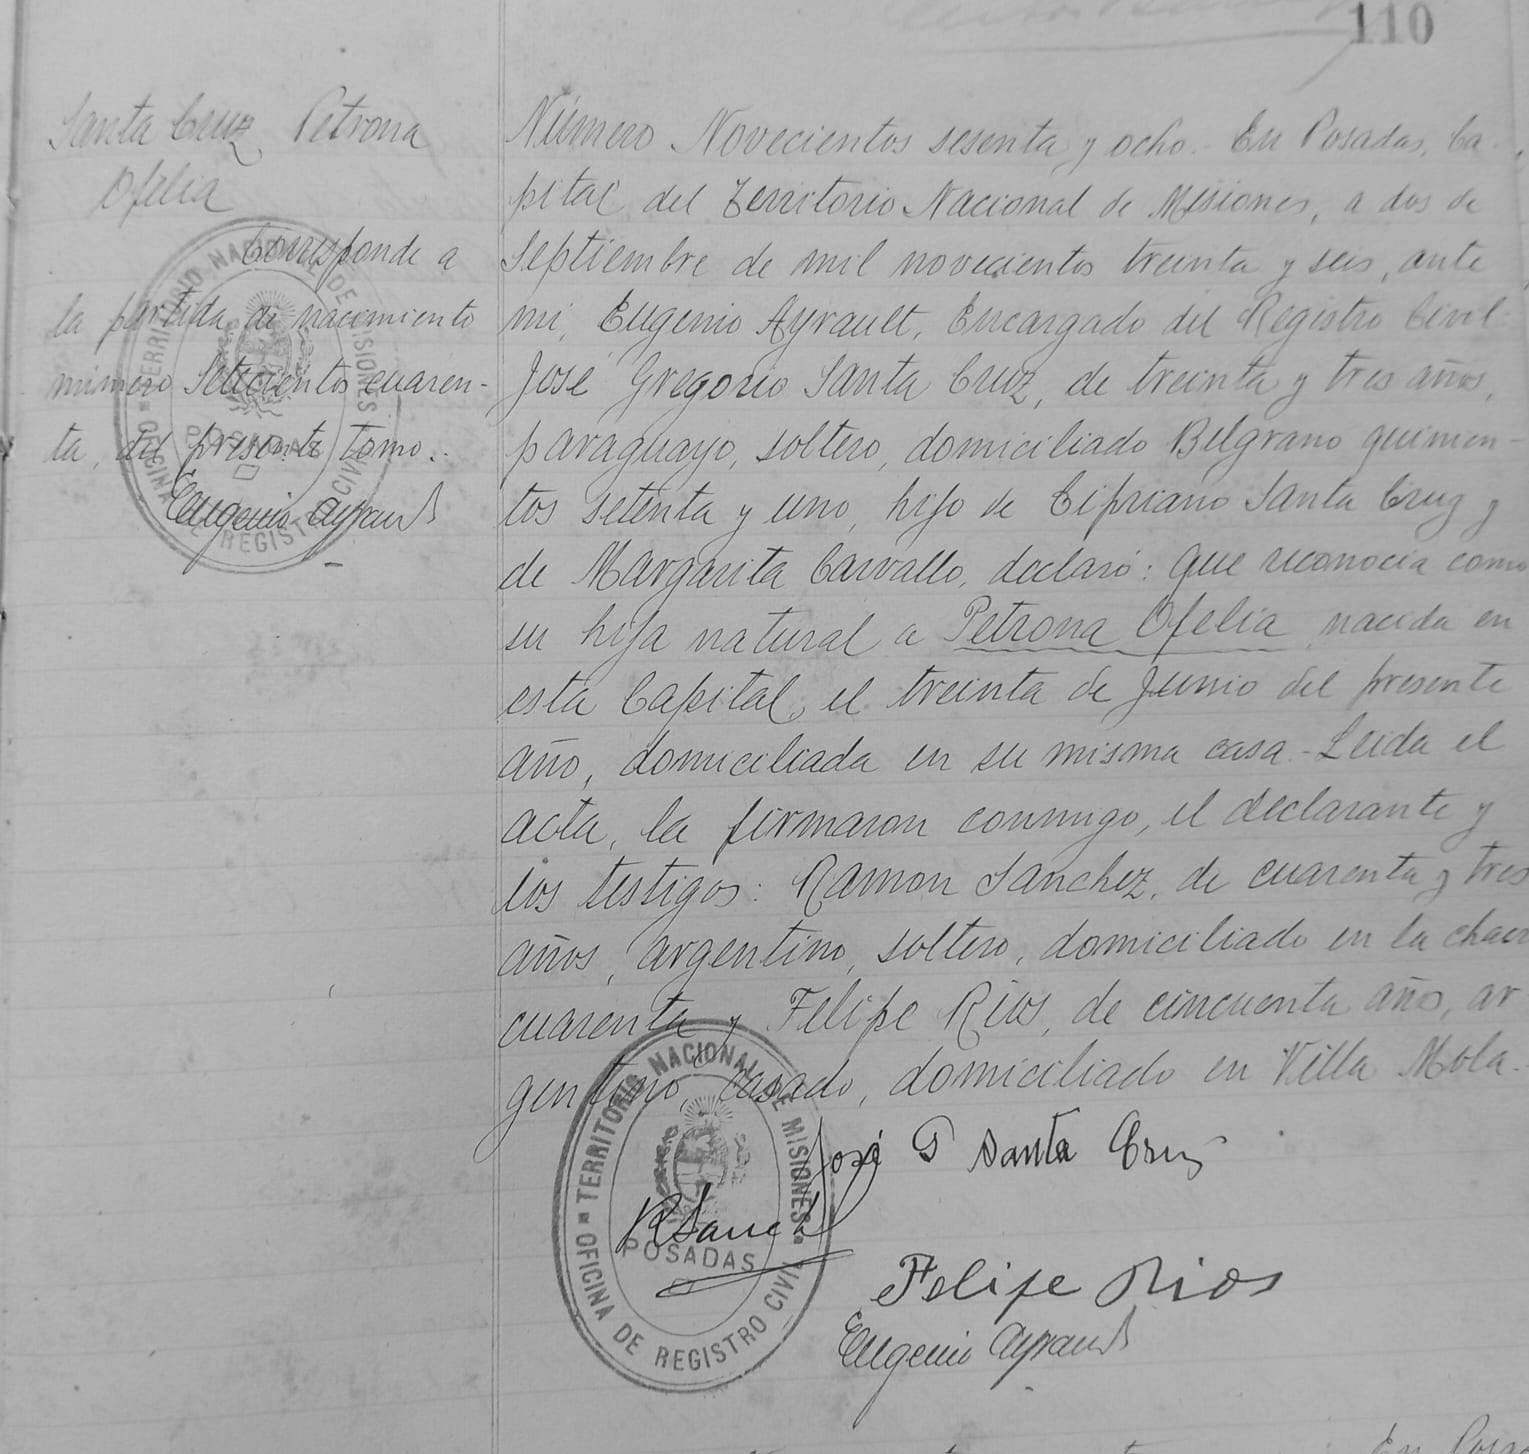 110
Santa Cruz, Petrona
Ofelia
Corresponde a
la partida de nacimiento
número Setecientos cuaren-
ta, del presente tomo.-
Eugenio Ayrault
TERRITORIO NACIONAL DE MISIONES
POSADAS
OFICINA DE REGISTRO CIVIL
Número Novecientos sesenta y ocho.- En Posadas, Ca-
pital del Territorio Nacional de Misiones, a dos de
Septiembre de mil novecientos treinta y seis, ante
mi, Eugenio Ayrault, Encargado del Registro Civil
José Gregorio Santa Cruz, de treinta y tres años,
paraguayo, soltero, domiciliado Belgrano quinien-
tos setenta y uno, hijo de Cipriano Santa Cruz y
de Margarita Carvallo, declaró: Que reconocia como
su hija natural a Petrona Ofelia, nacida en
esta Capital, el treinta de Junio del presente
año, domiciliada en su misma casa.- Leida el
acta, la firmaron conmigo, el declarante y
los testigos: Ramon Sanchez, de cuarenta y tres
años, argentino, soltero, domiciliado en la chacr
cuarenta y Felipe Rios, de cincuenta año, ar
gentino, casado, domiciliado en Villa Mola.-
José G Santa Cruz
RSanch
Felipe Rios
Eugenio Ayrault
TERRITORIO NACIONAL DE MISIONES
POSADAS
OFICINA DE REGISTRO CIVIL
En Posa